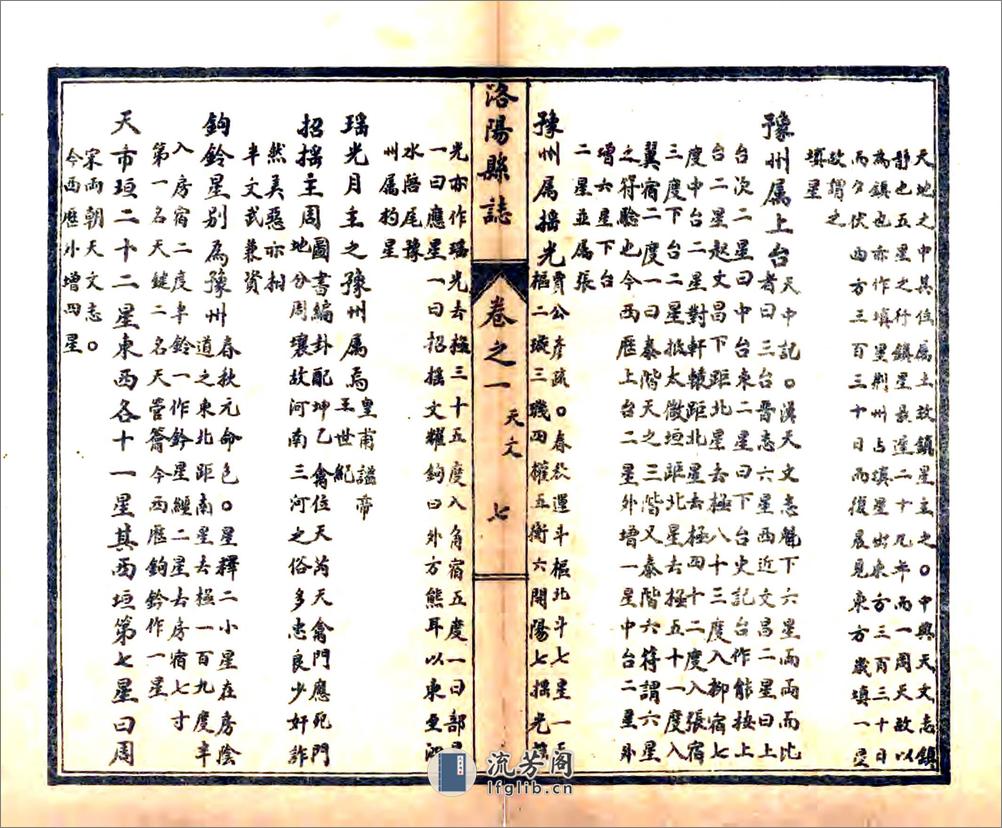 天地之中其位属土故鎮星主之〇中興天文志鎮
靜也五星之行鎮星最遲二十九年而一周天故以
為鎮也亦作填星荆州占填星出東方三百三十日
而夕伏西方三百三十日而復晨見東方歲填一宿
故謂之
填星
豫州属上台天中記〇漢天文志魁下六星兩兩而比
者曰三台晋志六星西近文昌二星曰上
台次二星曰中台東二星曰下台史記台作能按上
台二星起文昌下距北星去極八十三度入柳宿七
度中台二星對軒轅距北星去極四十二度入張宿
三度下台二星抵太微垣距北星去極五十一度入
翼宿二度一曰泰階天之三階又泰階六符謂六星
之符驗也今西歷上台二星外增一星中台二星外
增六星下台
二星並属張
豫州属揺光賈公彥疏〇春秋運斗樞北斗七星一天
樞二璇三璣四權五衡六開陽七揺光
洛陽縣誌
卷之一
天文
七
光亦作瑶光去極三十五度入角宿五度一曰部星
一曰應星一曰招揺文耀鉤曰外方熊耳以東至泗
水陪尾豫
州属杓星
瑶光月主之豫州属焉皇甫謐帝
王世紀
招揺主周圖書編卦配坤乙禽位天芮天禽門應死門
地分周壤故河南三河之俗多忠良少奸詐
然美惡亦相
半文武兼資
鉤鈐星别為豫州春秋元命包〇星釋二小星在房陰
道之東北距南星去極一百九度半
入房宿二度半鈐一作鈐星經二星去房宿七寸
第一名天鍵二名天管籥今西歷鉤鈐作一星
天市垣二十二星東西各十一星其西垣第七星曰周
宋兩朝天文志〇
今西歷小增四星
流芳阁
lfglib.cn